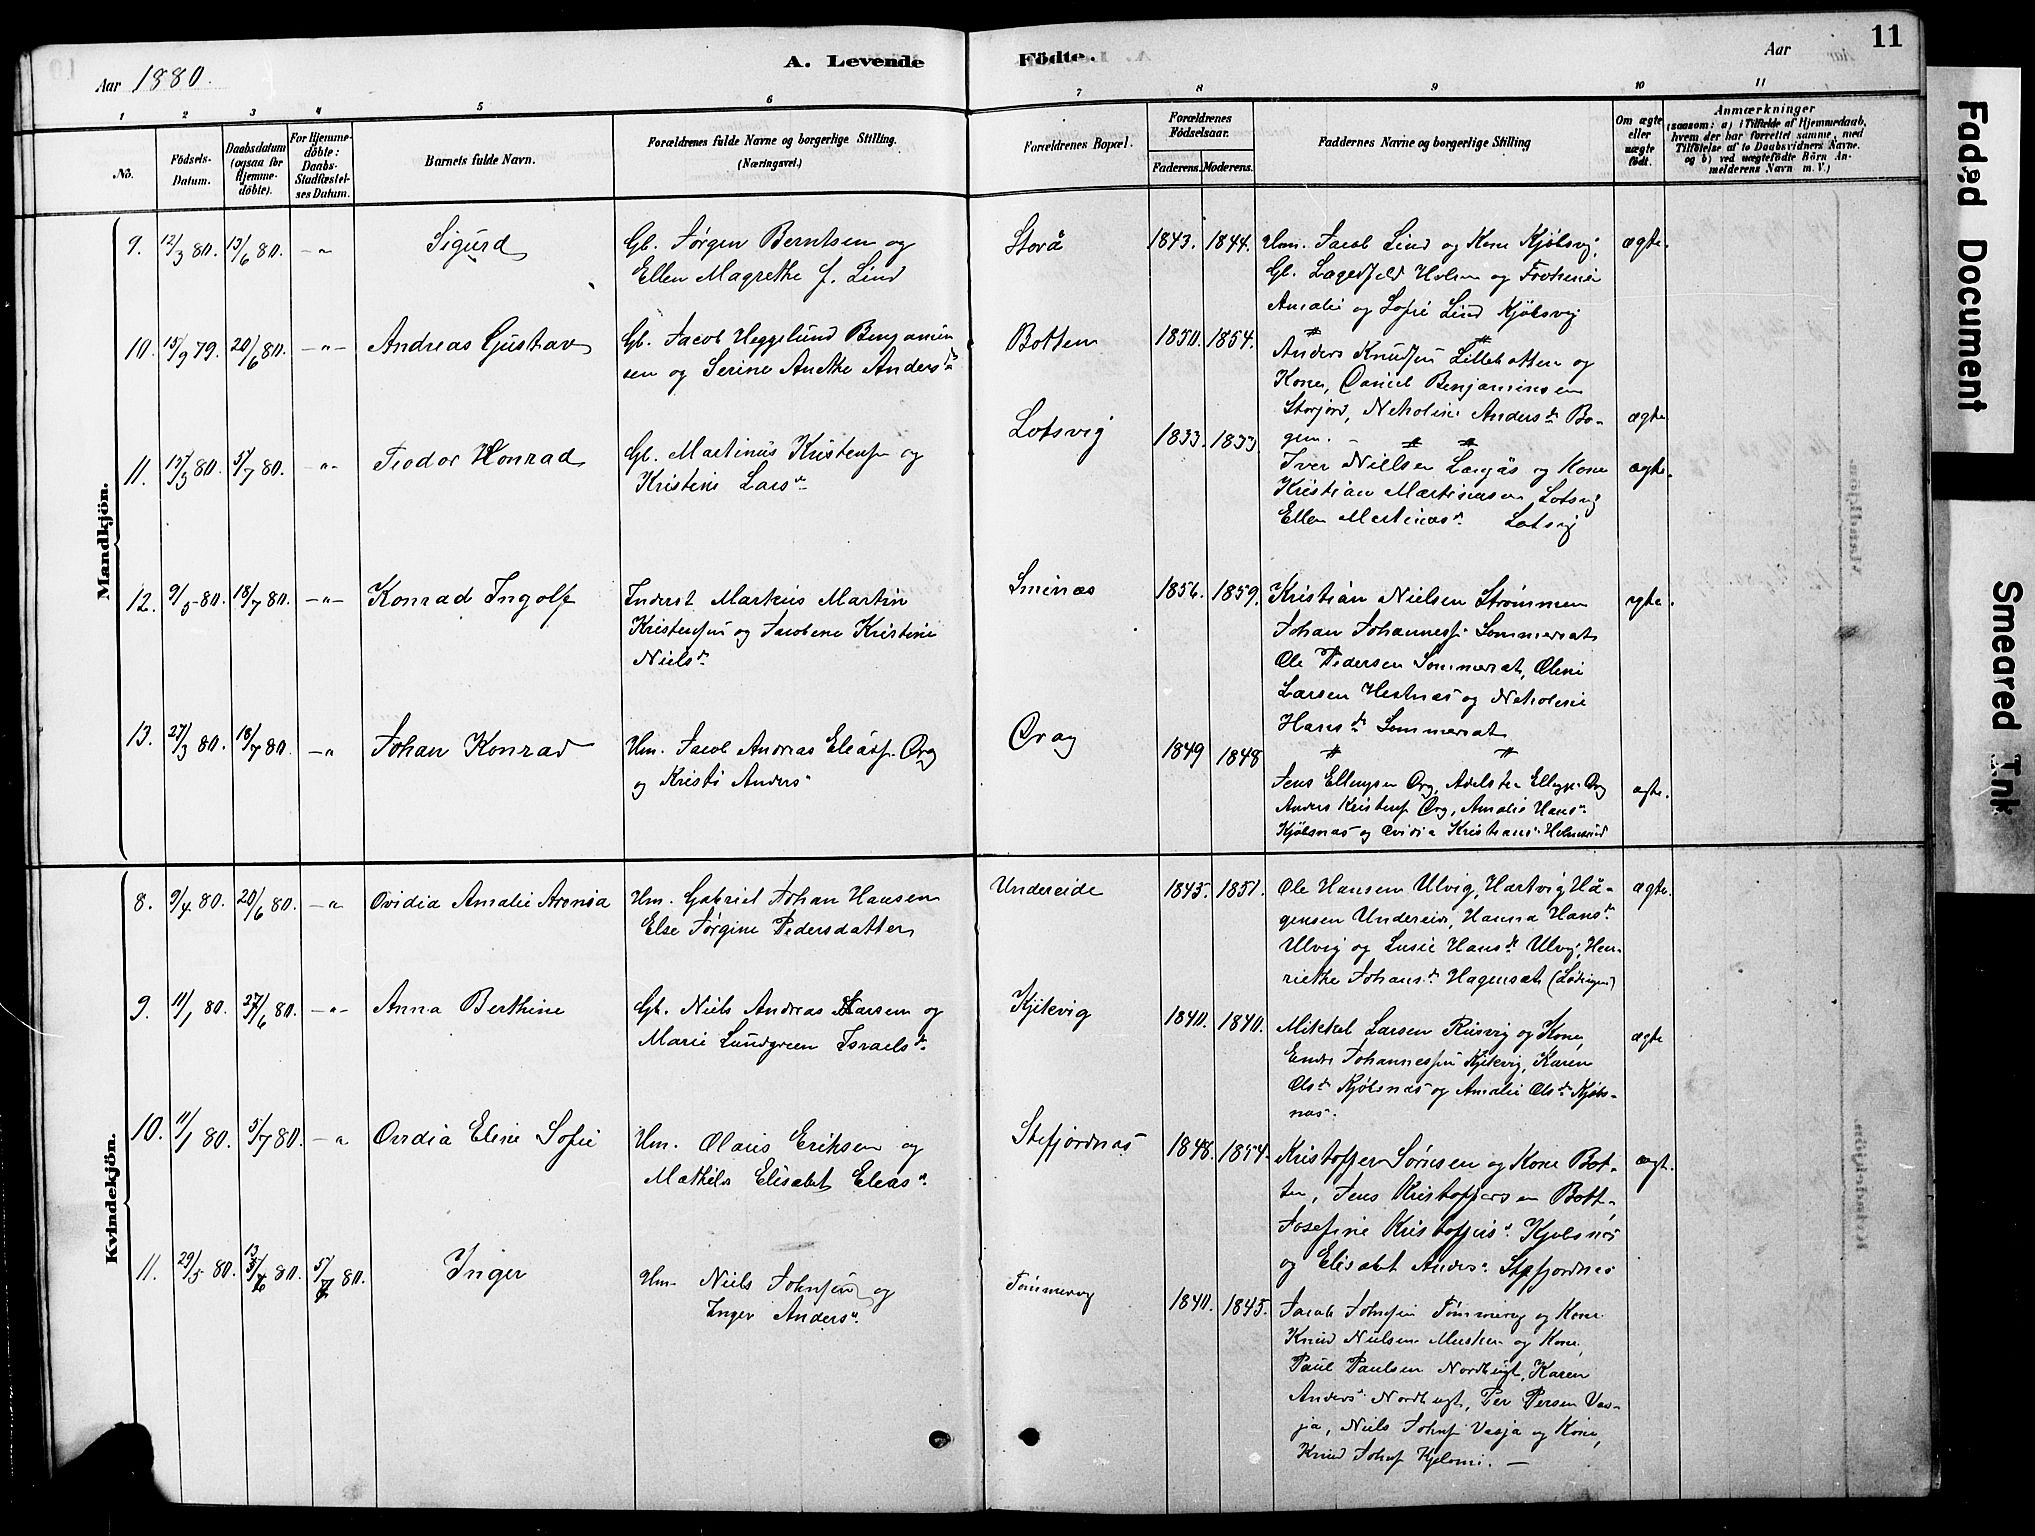 11
Aar 1880.
A. Levende Födte.
Aar
1 2 3 4 5 6 7 8 9 10 11
Nô.
Födsels-Datum.
Daabsdatum (ogsaa for Hjemme-döbte).
For Hjemme-döbte: Daabs-Stadfæstel-ses Datum.
Barnets fulde Navn.
Forældrenes fulde Navne og borgerlige Stilling.
(Næringsvei.)
Forældrenes Bopæl.
Forældrenes Födselsaar.
Faderens. Moderens.
Faddernes Navne og borgerlige Stilling
Om ægte eller uægte födt.
Anmærkninger
(saasom: a) i Tilfælde af Hjemmedaab, hvem der har forrettet samme, med Tilföielse af to Daabsvidners Navne, og b) ved uægtefödte Börn An-melderens Navn m. V.)
Mandkjön.
9. 12/3 80. 13/6 80. -"- Sigurd
Gb. Jørgen Berntsen og
Ellen Magrethe f. Lind
Storå 1843. 1844.
Hm. Jacob Lind og Kone Kjøbsvig,
Gb. Holm og
Amalie og Sofie Lind Kjøbsvig
ægte.
10. 15/9 79. 20/6 80. -"- Andreas Gustav
Gb. Jacob Heggelund Benjamin
sen og Serine Anethe Andersdr
Botten 1850. 1854.
Anders Knudsen Lillebotten og
Kone, Daniel Benjaminsen
Storjord, Nekoline Andersdr Bo-
gen. -
ægte
11. 15/3 80. 5/7 80. -"- Teodor Konrad
Gb. Martinus Kristensen og
Kristine Larsdr
Lotsvig 1833. 1833
Iver Nielsen og Kone
Kristian Martinusen Lotsvig
Ellen Martinusdr Lotsvig
ægte.
12. 9/5 80. 18/7 80. -"- Konrad Ingolf
Inderst Markus Martin
Kristensen og Jacobine Kristine
Nielsdr
Sminæs 1856. 1859.
Kristian Nielsen Strømmen
Johan Johannesf. Sommerset
Ole Pedersen Sommerset, Oline
Larsen Hestnæs og Nekoline
Hansdr Sommerset
ægte.
13. 27/3 80. 18/7 80. -"- Johan Konrad
Hm. Jacob Andreas Eliasf. Ørag
og Kristi Andersdr
Ørag 1849 1848
Jens Ellingsen Ørg, Ørg
Anders Kristensf Ørg, Amalie Hansdr
Kjøbsnæs og Ovidia Kristiansdr
ægte.
Kvindekjön.
8. 9/4 80. 20/6 80. -"- Ovidia Amalie Aronia
Hm. Gabriel Johan Hansen
Else Jørgine Pedersdatter
Undereide 1845. 1851.
Ole Hansen Ulvig, Hartvig Hå-
gensen Undereid, Hanna Hansdr
Ulvig og Lusie Hansdr Ulvig, Hen-
riethe Johansdr Hagensæt (Lødingen)
ægte.
9. 11/1 80. 27/6 80. -"- Anna Berthine
Gb. Niels Andreas Larsen og
Marie Lundgreen Israelsdr
Kjikvig 1840. 1840.
Mikkel Larsen Rusvig og Kone,
Endre Johannessen Kjikvig, Karen
Olsdr Kjøbsnæs og Amalie Olsdr Kjøbs-
næs.
ægte
10. 11/1 80. 5/7 80. -"- Ovidia Eline Sofie
Hm. Olaus Eriksen og
Mathilde Elisabet Eliasdr
Stefjordnæs 1848. 1854.
Kristoffer Sørnsen og Kone Bot-
ten, Jens Kristoffersen Bott-
Josefine Kristoffersdr Kjøbsnæs
og Elisabet Andersdr Stefjordnæs
ægt.
11. 29/5 80. 13/6 80. 5/7 80. Inger
Hm. Niels Johnsen og
Inger Andersdr
Tømmervg 1840. 1845.
Jacob Johnsen Tømmervg og Kone
Knud Nielsen Musken og Kone,
Paul Paulsen Nordbugt, Karen
Andersdr Nordbugt, Per Persen Vas-
ja, Niels Johnsf Vasja og Kone,
Knud Johnsf Kjelomi. —
Faded Document
Smeared Ink